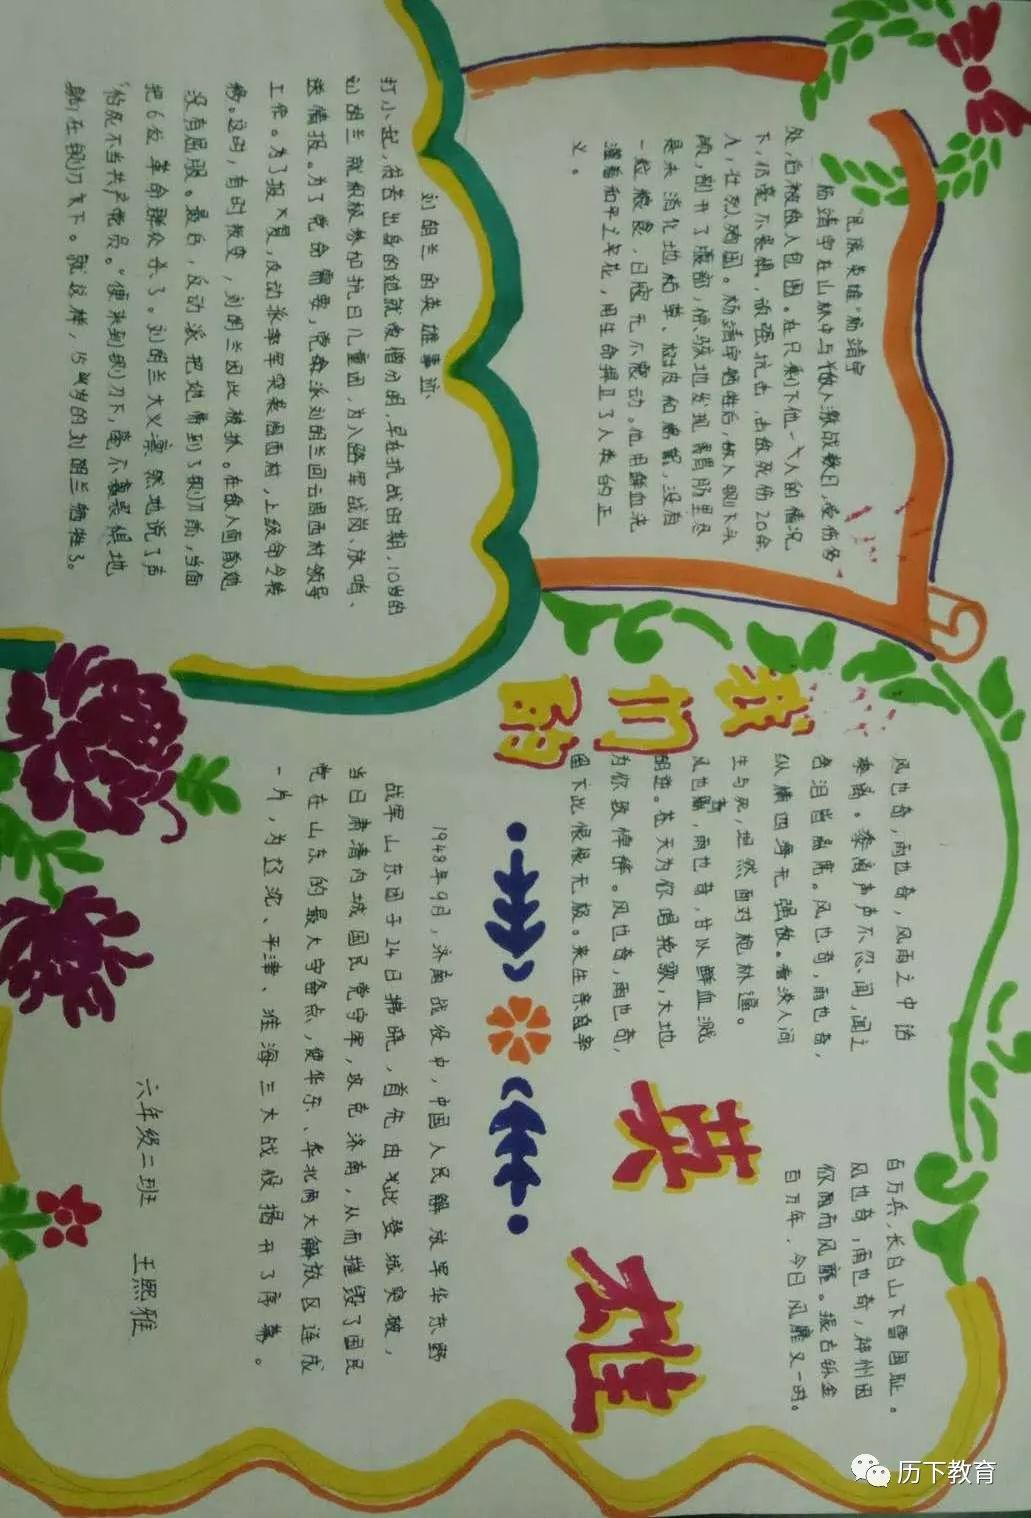 "民族英雄"杨靖宇
杨靖宇在山林中与敌人激战数日,受伤多
处,后被敌人包围。在只剩下他一个人的情况
下,仍毫不畏惧,顽强抗击,击敌死伤20余
人,壮烈殉国。杨靖宇牺牲后,敌人割下头
颅,剖开了腹部,惊骇地发现胃肠里尽
是未消化地枯草、树皮和棉絮,没有
一粒粮食,日寇无不震动。他用鲜血浇
灌着和平之花,用生命捍卫了人类的正
义。
刘胡兰的英雄事迹
打小起,穷苦出身的她就爱憎分明,早在抗战时期,10岁的
刘胡兰就积极参加抗日儿童团,为八路军战岗、放哨、
送情报。为了党命需要,党命派刘胡兰回云周西村领导
工作。为了报大夏,反动派率军突袭周西村,上级命令转
移。这时,有时叛变,刘胡兰因此被抓。在敌人面前她
没有屈服。最后,反动派把她带到了铡刀前,当面
把6位革命群众杀了。刘胡兰大义凛然地说了声
"怕死不当共产党员。"便来到铡刀下,毫不畏惧地
躺在铡刀底下。就这样,15岁的刘胡兰牺牲了。
我们的
英雄
风也奇,雨也奇,风雨之中话
秦淮。秦淮声声不忍闻,闻之
色泪皆晶莹。风也奇,雨也奇,
纵横四海无强敌。看淡人间
生与死,坦然面对枪林逼。
风也奇,雨也奇,甘以鲜血溅
明楚。苍天为你唱挽歌,大地
为你致悼辞。风也奇,雨也奇,
留下此恨恨无极。来生亲自率
百万兵,长白山下雪国耻。
风也奇,雨也奇,神州因
你而风靡。
百万年,今日风靡又一时。
1948年9月,济南战役中,中国人民解放军华东野
战军山东团于24日拂晓,首先由此登城突破,
当日肃清内城国民党守军,攻克济南,从而摧毁了国民
党在山东的最大守备点,使华东、华北两大解放区连成
一片,为辽沈、平津、淮海三大战役揭开了序幕。
六年级二班 王熙雅
历下教育